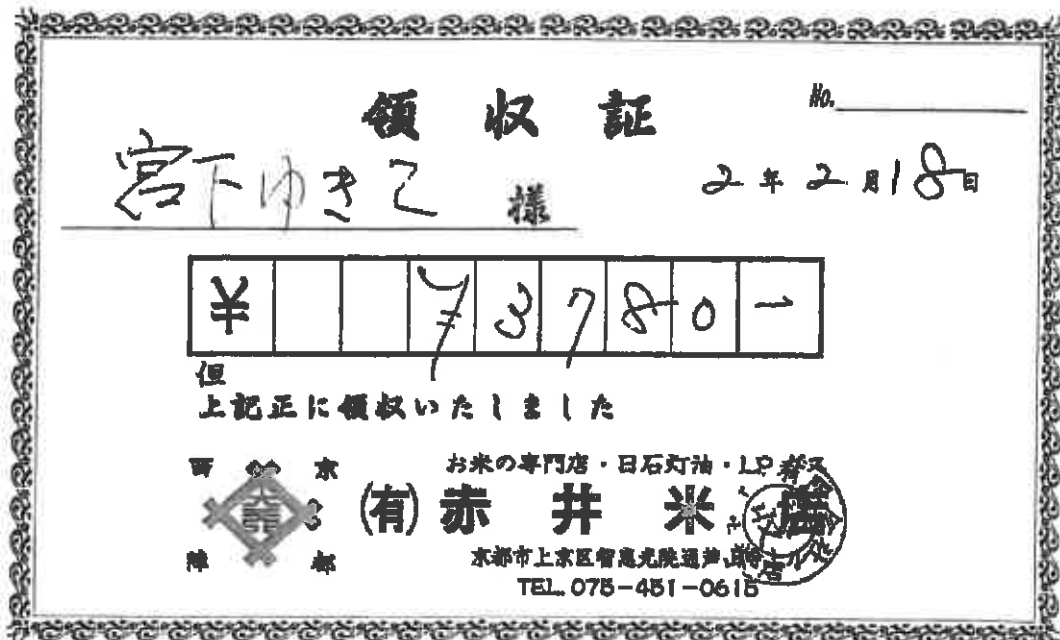 領収証
No.
宮下ゆきこ 様
2年2月18日
¥ ¥3780-
但
上記正に領収いたしました
西 京
陣 都
お米の専門店・日石灯油・LPガス
(有)赤井米店
京都市上京区智恵光院通芦山寺上ル
TEL. 075-451-0615